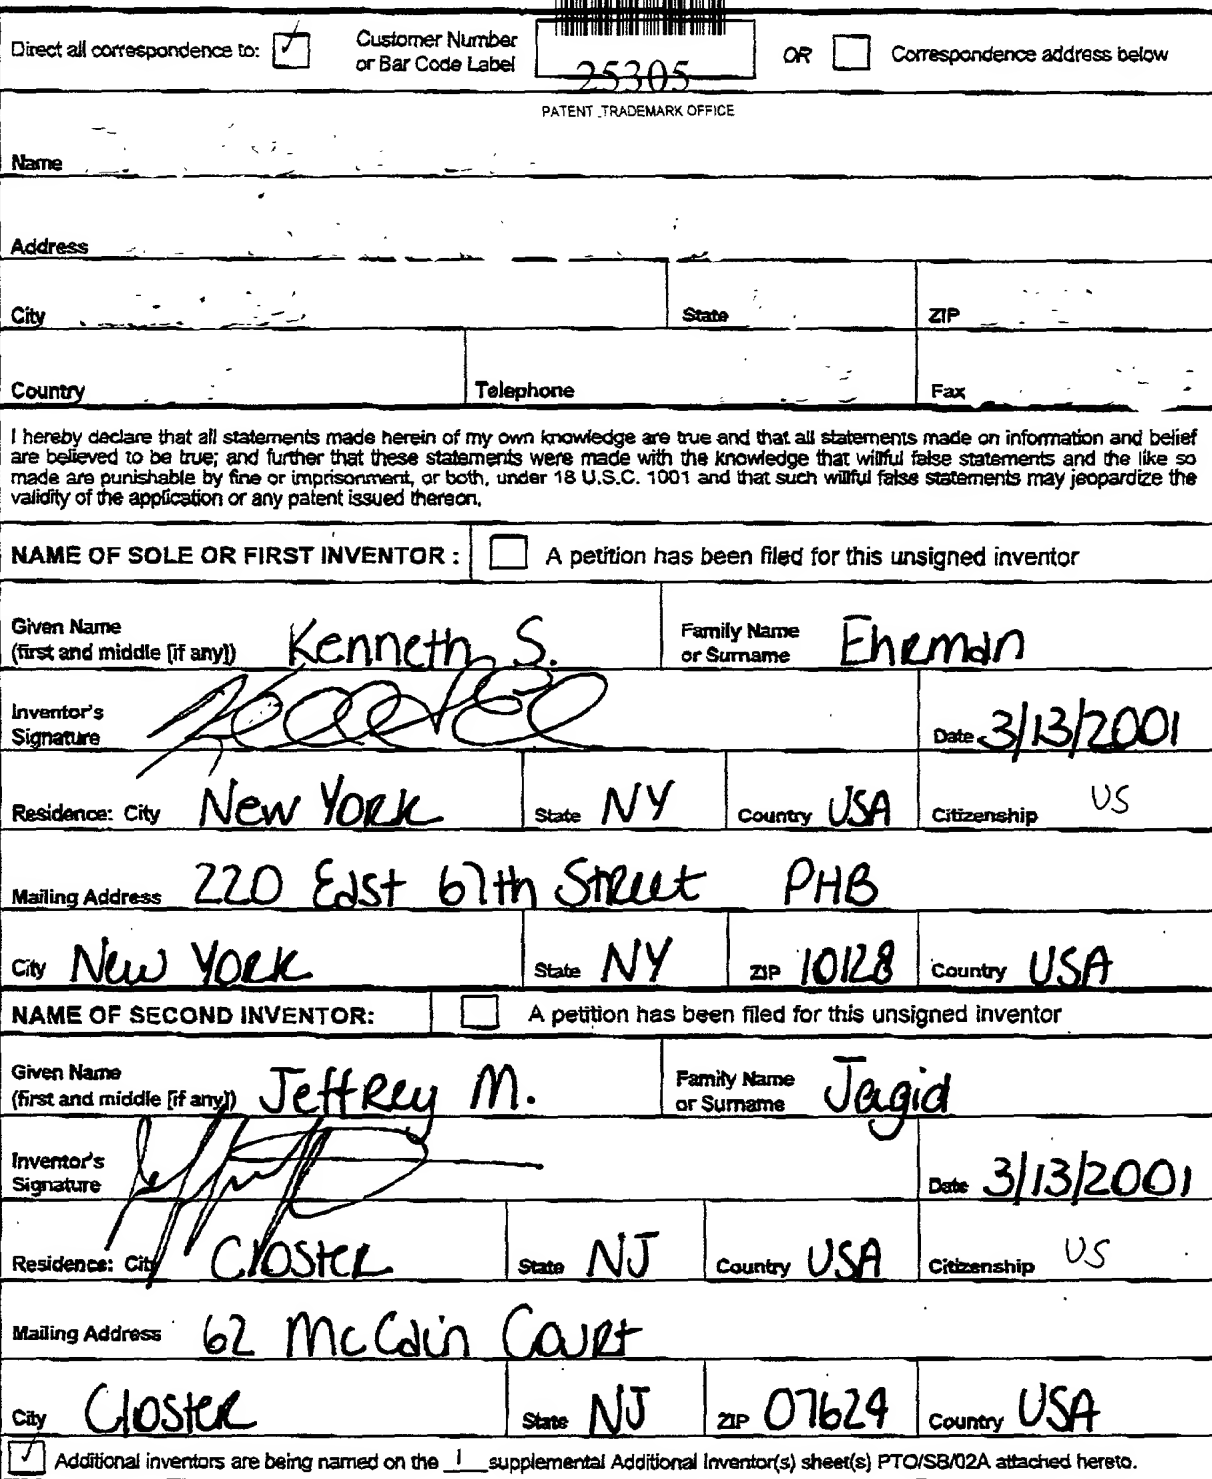 Direct all correspondence to: ✓ Customer Number or Bar Code Label 25305 OR Correspondence address below
PATENT TRADEMARK OFFICE
Name
Address
City State ZIP
Country Telephone Fax
I hereby declare that all statements made herein of my own knowledge are true and that all statements made on information and belief
are believed to be true; and further that these statements were made with the knowledge that willful false statements and the like so
made are punishable by fine or imprisonment, or both, under 18 U.S.C. 1001 and that such willful false statements may jeopardize the
validity of the application or any patent issued thereon.
NAME OF SOLE OR FIRST INVENTOR : A petition has been filed for this unsigned inventor
Given Name (first and middle [if any]) Kenneth S. Family Name or Surname Ehrman
Inventor's Signature Date 3/13/2001
Residence: City New York State NY Country USA Citizenship US
Mailing Address 220 East 67th Street PHB
City New York State NY ZIP 10128 Country USA
NAME OF SECOND INVENTOR: A petition has been filed for this unsigned inventor
Given Name (first and middle [if any]) Jeffrey M. Family Name or Surname Jagid
Inventor's Signature Date 3/13/2001
Residence: City Closter State NJ Country USA Citizenship US
Mailing Address 62 McCain Court
City Closter State NJ ZIP 07624 Country USA
✓ Additional inventors are being named on the 1 supplemental Additional Inventor(s) sheet(s) PTO/SB/02A attached hereto.